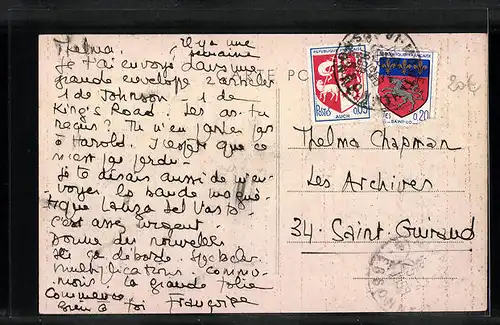 Thelma, Il y a une
semaine
Je t'ai envoyé dans une
grande enveloppe 2 articles
1 de Johnson 1 de
King's Road. Les as-tu
reçus? Tu n'en parles pas
à Harold. J'espère que ce
n'est pas perdu.
Je te disais aussi de m'en-
voyer la bande magné-
tique Lanza del Vasto
c'est assez urgent.
Donne des nouvelles
Ici ça déborde.
multiplications. Commu-
nions. La grande folie
Commence
Bien à toi Françoise
CARTE PO
REPUBLIQUE
POSTES
AUCH
0,05
REPUBLIQUE FRANÇAISE
SAINT-LO
0,20
Thelma Chapman
Les Archives
34. Saint-Guiraud